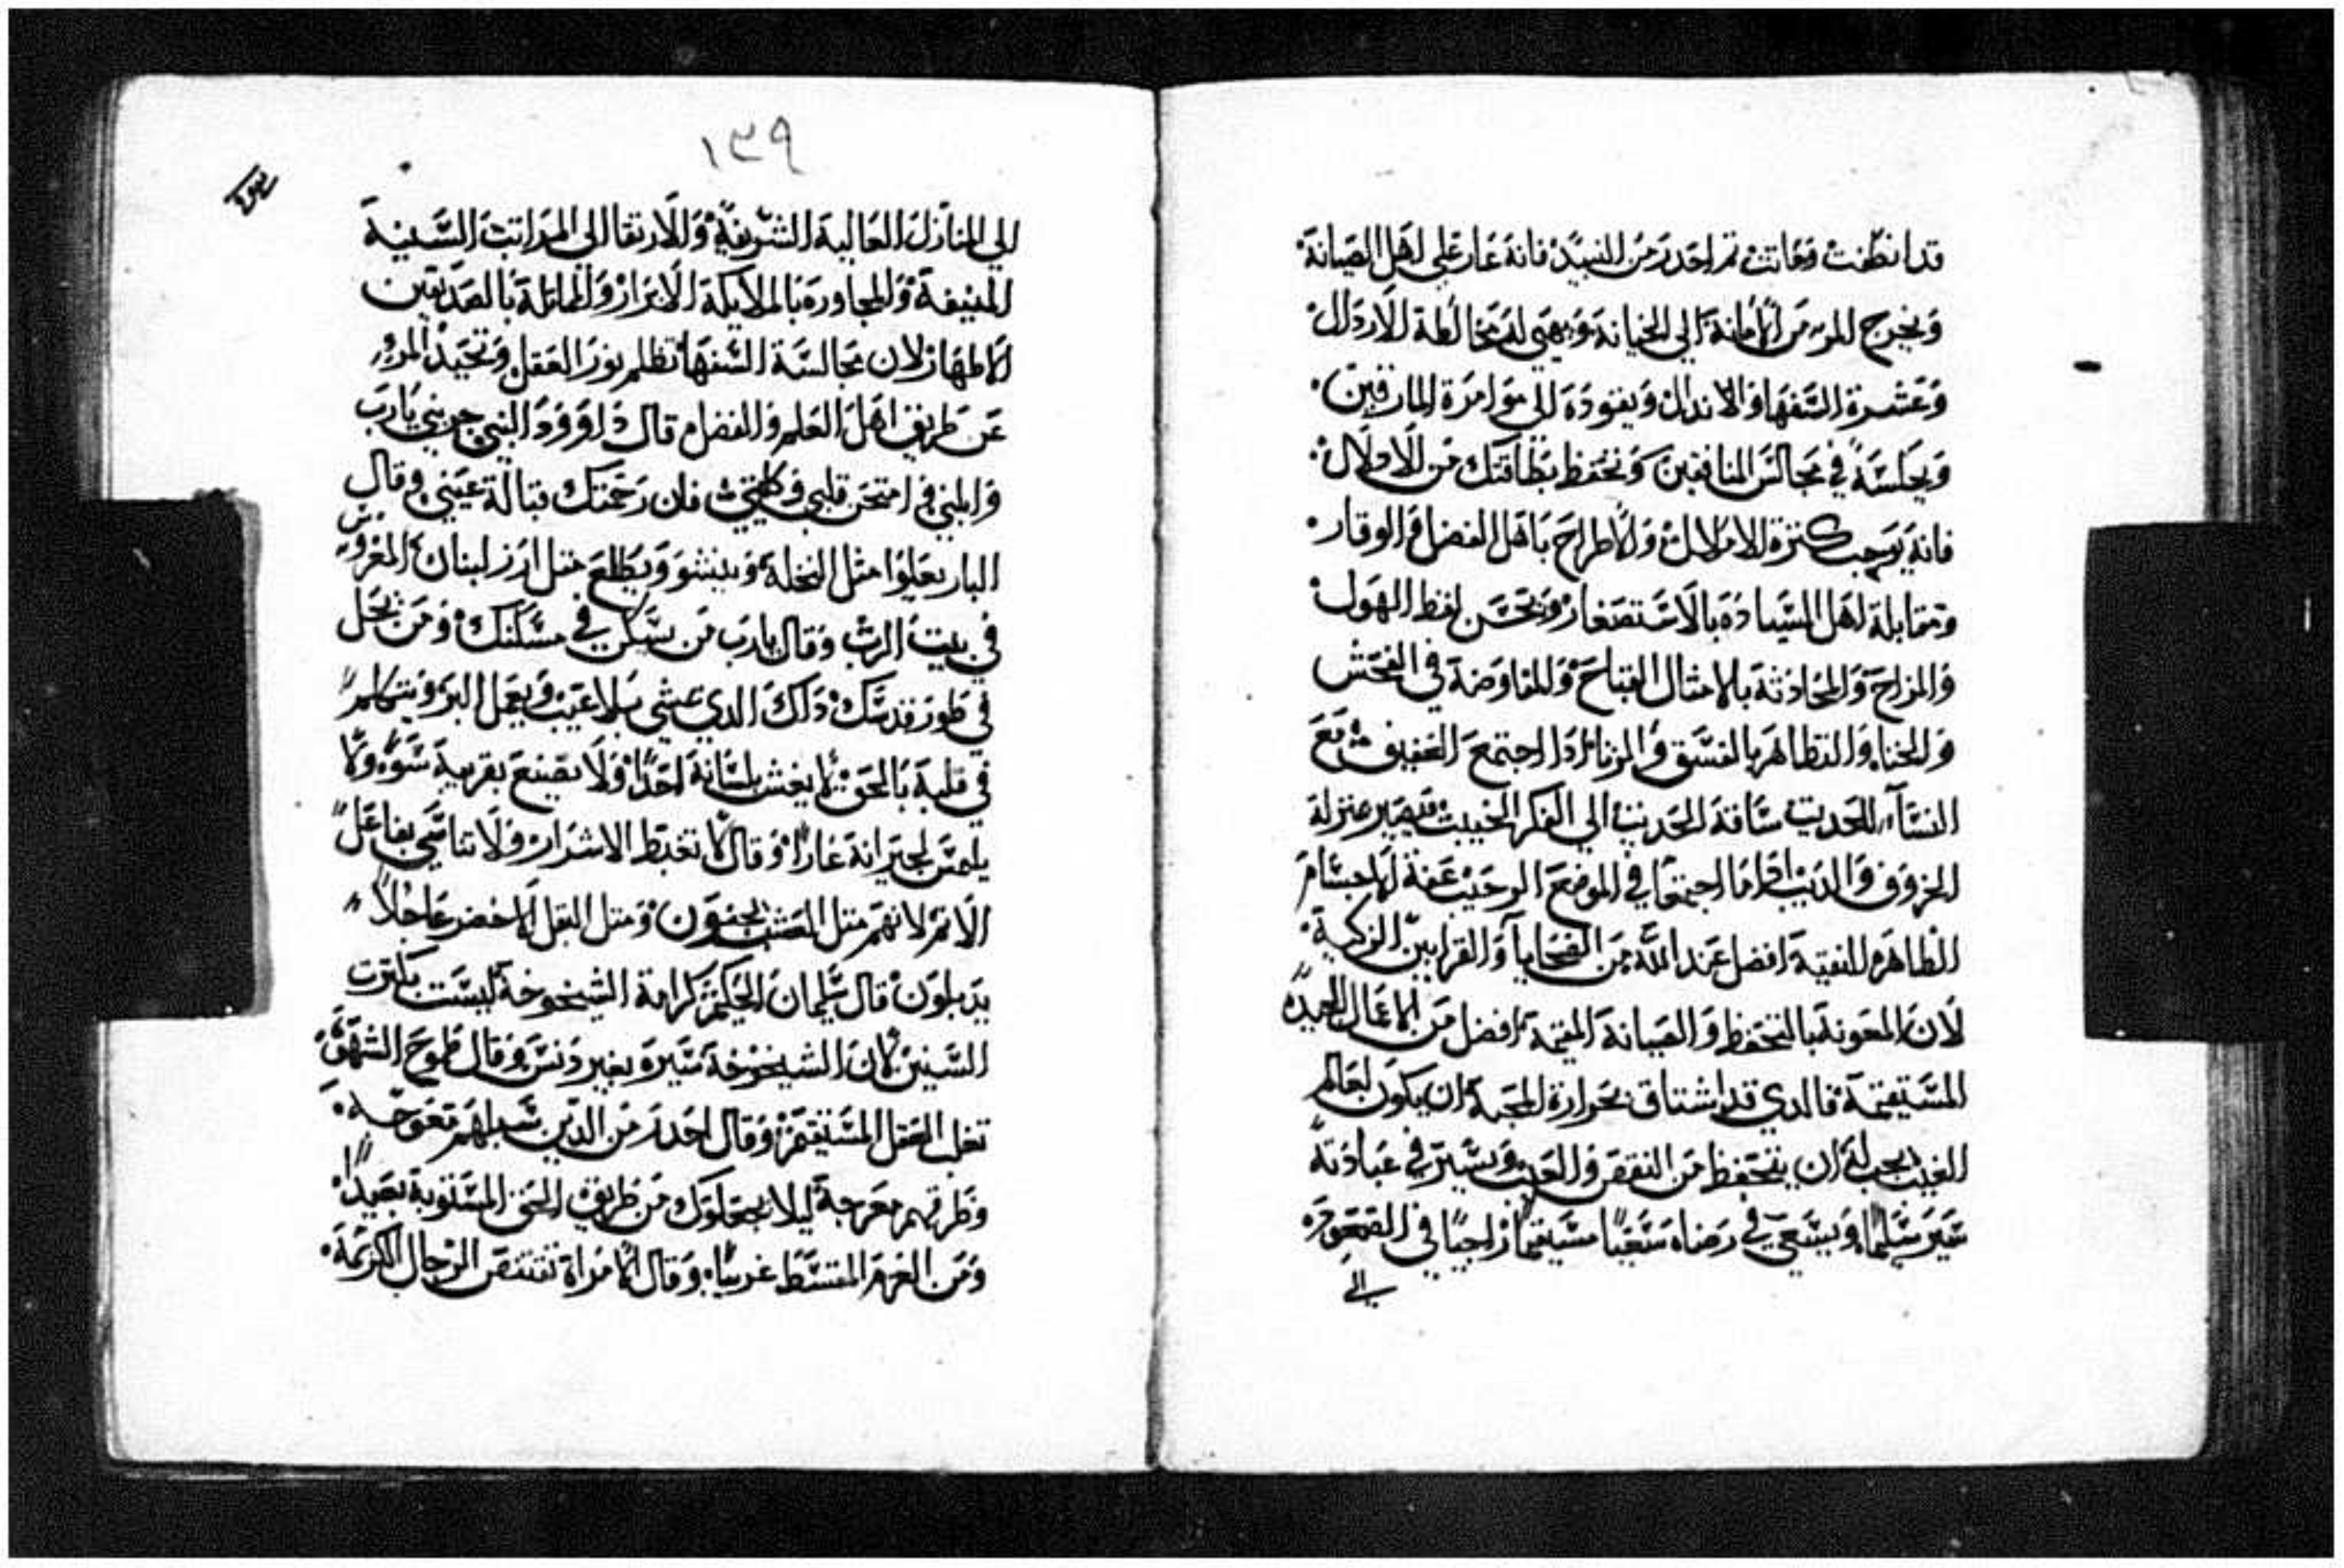 قد انطفت وفاتت ثم احدر من النبيد فانه عار على اهل الصيانة
ويخرج المرء من الامانة الي الخيانة ويهيي له مخالطة الاردال
وعشرة السفها والاندال ويقوده الى موامرة المارقين
ويجلسه في مجالس المنافقين وتحفظ بطاقتك من الادلال
فانه يوجب كترة الاملال والاطراح باهل الفضل والوقار
ومقابلة اهل السيادة بالاستصغار ويحسن لفظ الهول
والمزاح والمحادثة بالامثال القباح والمفاوضة في الفحش
والخنا والتظاهر بالفسق والزنا ادا اجتمع العفيف مع
النسآء للحديت ساقة الحديت الي الفكر الخبيت فيصير بمنزلة
الخروف والديب ادا ما اجتمعا في الموضع الوحيد عفة الاجسام
الطاهره النقية افضل عند الله من الضحايا والقرابين الزكية
لان المعونة بالتحفظ والصيانة المقيمة افضل من الاعمال الحميده
المستيقمة فالدي قد اشتاق بحرارة المحبة ان يكون لعالم
الغيب يجب له ان يتحفظ من النقص والعيب ويسير في عبادته
سير سليما ويسعي في رضاه سعيا مستيقما راجيا في الصعود
الي
١٣٩
الي المنازل العالية الشريفة والارتقا الى المراتب السنية
المنيفة والمجاورة بالملايكة الابرار والماتلة بالصديقين
الاطهار لان مجالسة السفها تظلم نور العقل وتحيد المرء
عن طريق اهل العلم والفضل قال داوود النبي جربني يارب
وابلني امتحن قلبي وكليتي فان رحمتك قبالة عيني وقال
البار يعلوا مثل النخلة وينشو ويطلع متل ارز لبنان المغروس
في بيت الرب وقال يارب من يسكن في مسكنك ومن يحل
في طور قدسك داك الدي يمشي بلا عيب ويعمل البر ويتكلم
في قلبه بالحق لا يغش بلسانه احدا ولا يصنع بقريبه سوء ولا
يلتمس لجيرانه عارا وقال لا تغبط الاشرار ولا تتاسي بفاعل
الاتم لانهم متل العشب يجفون ومتل البقل الاخضر عاجلا
يدبلون قال سليمان الحكيم كرامة الشيخوخة ليست بكترت
السنين لان الشيخوخة سيرة بغير دنس وقال طموح الشهوة
تغلب العقل المستقيم وقال احدر من الدين سبلهم معوجة
وطرقهم معرجة ليلا يجعلوك من طريق الحق المستوية بعيدا
ومن الفهم المتسط غريبا وقال المراة تقتنص الرجال الكريمة